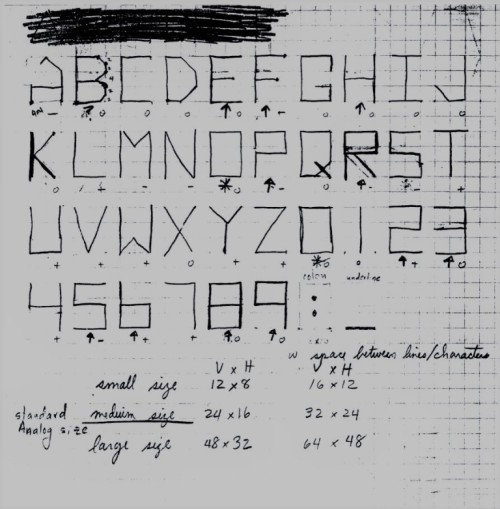 A B C D E F G H I J
K L M N O P Q R S T
U V W X Y Z 0 1 2 3
colon underline
4 5 6 7 8 9 : _
w space between lines/characters
V x H V x H
small size 12 x 8 16 x 12
standard Analog size medium size 24 x 16 32 x 24
large size 48 x 32 64 x 48